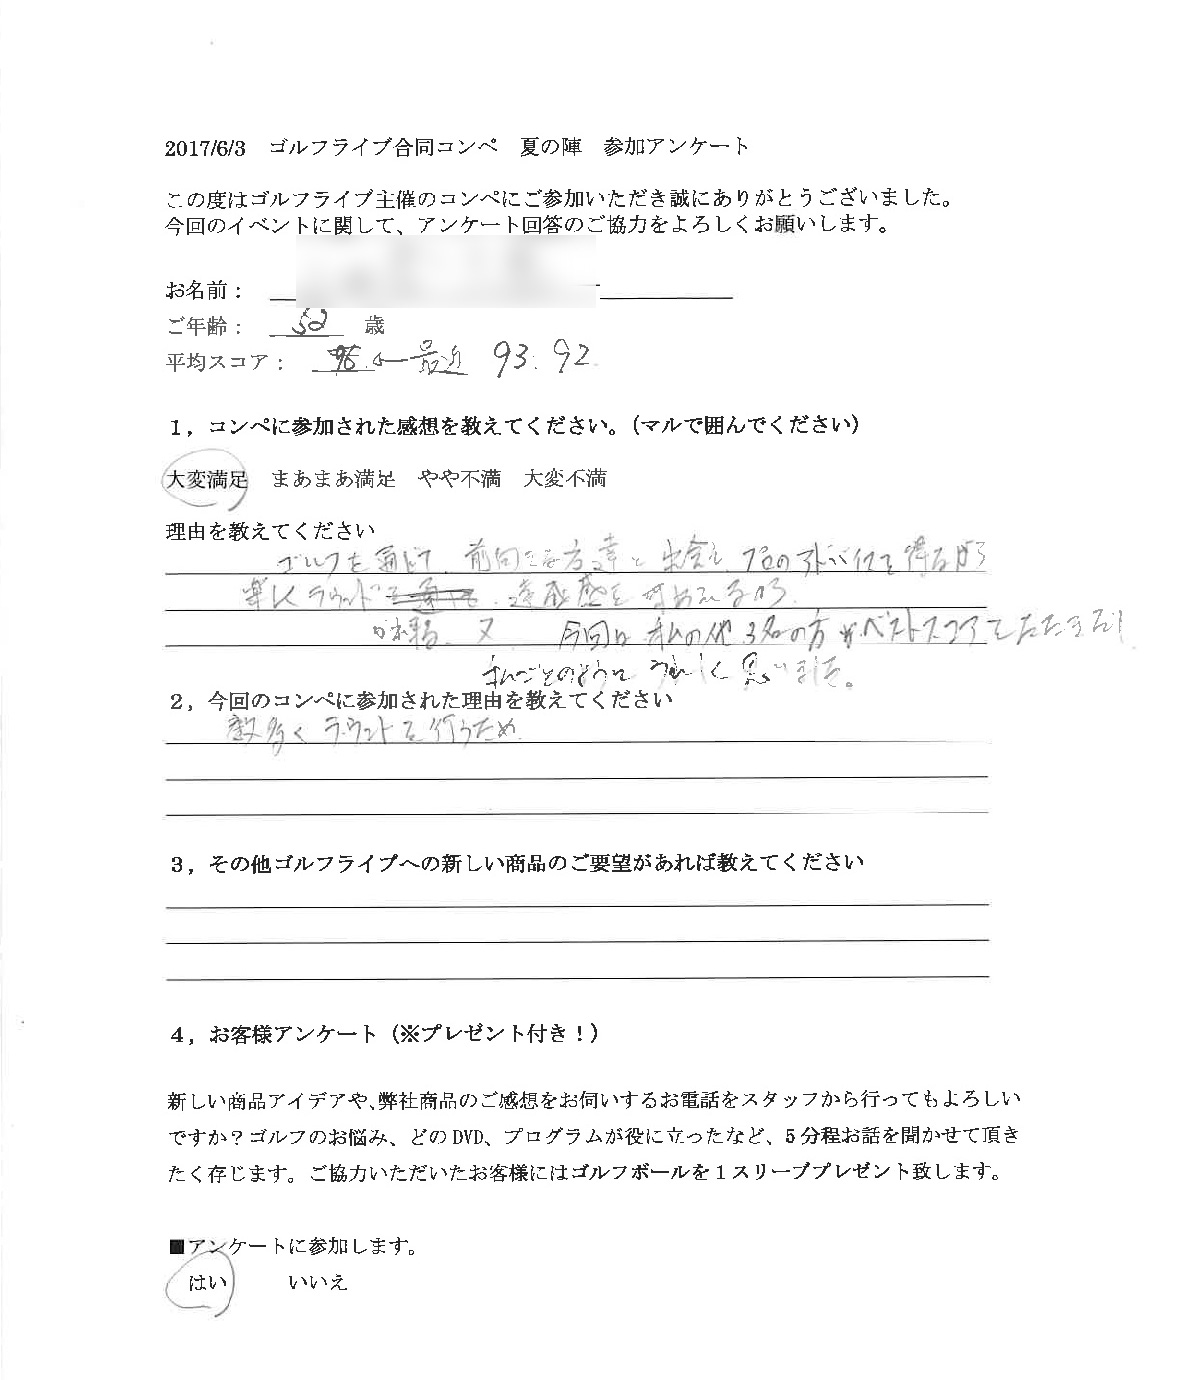 2017/6/3 ゴルフライブ合同コンペ 夏の陣 参加アンケート
この度はゴルフライブ主催のコンペにご参加いただき誠にありがとうございました。
今回のイベントに関して、アンケート回答のご協力をよろしくお願いします。
お名前：
ご年齢： 52 歳
平均スコア： 96 ← 最近 93. 92
1，コンペに参加された感想を教えてください。（マルで囲んでください）
大変満足 まあまあ満足 やや不満 大変不満
理由を教えてください
ゴルフを通じて、前向きな方達と出会え、プロのアドバイスを得ながら
楽しくラウンド 達成感を
又 今回は私の他3名の方がベストスコアで
私ごとのように うれしく思いました。
2，今回のコンペに参加された理由を教えてください
数多くラウンドを行うため
3，その他ゴルフライブへの新しい商品のご要望があれば教えてください
4，お客様アンケート（※プレゼント付き！）
新しい商品アイデアや、弊社商品のご感想をお伺いするお電話をスタッフから行ってもよろしい
ですか？ゴルフのお悩み、どの DVD、プログラムが役に立ったなど、5分程お話を聞かせて頂き
たく存じます。ご協力いただいたお客様にはゴルフボールを1スリーブプレゼント致します。
■アンケートに参加します。
はい いいえ